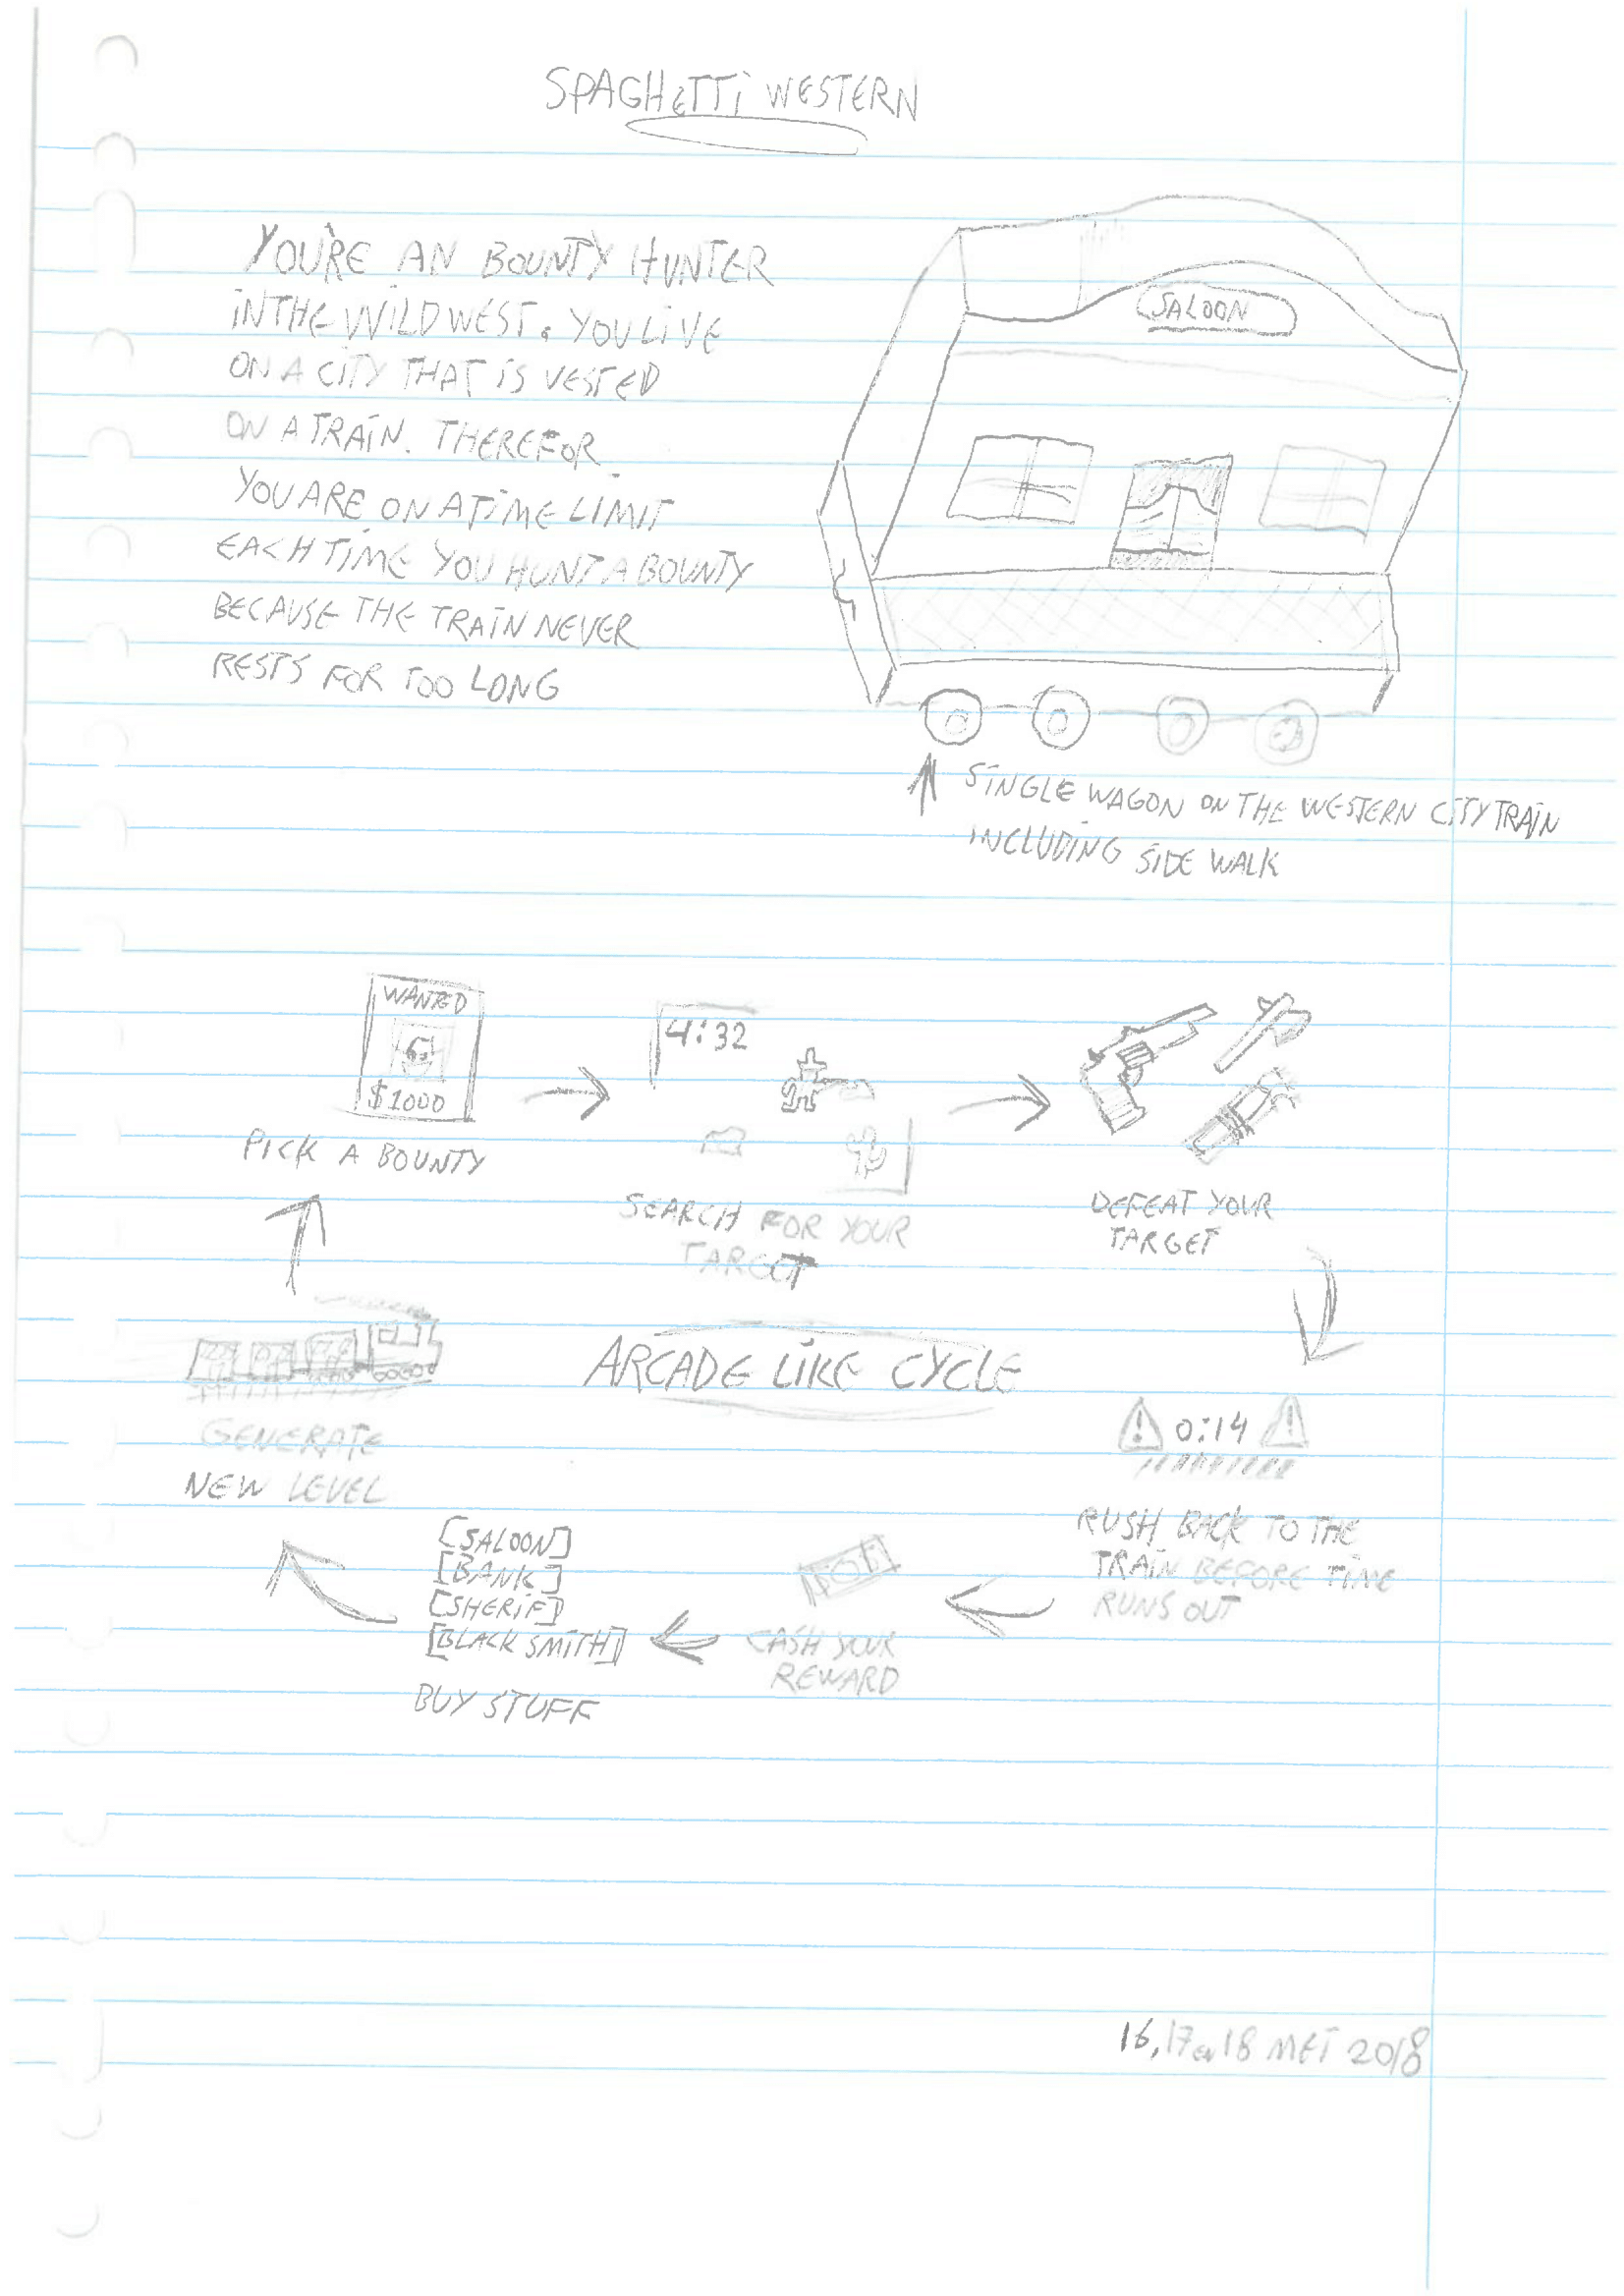 SPAGHETTI WESTERN
YOU'RE AN BOUNTY HUNTER
IN THE WILD WEST. YOU LIVE
ON A CITY THAT IS VESTED
ON A TRAIN. THEREFOR
YOU ARE ON A TIME LIMIT
EACH TIME YOU HUNT A BOUNTY
BECAUSE THE TRAIN NEVER
RESTS FOR TOO LONG
SALOON
SINGLE WAGON ON THE WESTERN CITY TRAIN
INCLUDING SIDE WALK
WANTED
$1000
PICK A BOUNTY
4:32
SEARCH FOR YOUR
TARGET
DEFEAT YOUR
TARGET
ARCADE LIKE CYCLE
0:14
RUSH BACK TO THE
TRAIN BEFORE TIME
RUNS OUT
CASH YOUR
REWARD
[SALOON]
[BANK]
[SHERIF]
[BLACK SMITH]
BUY STUFF
GENERATE
NEW LEVEL
16, 17 en 18 MEI 2018